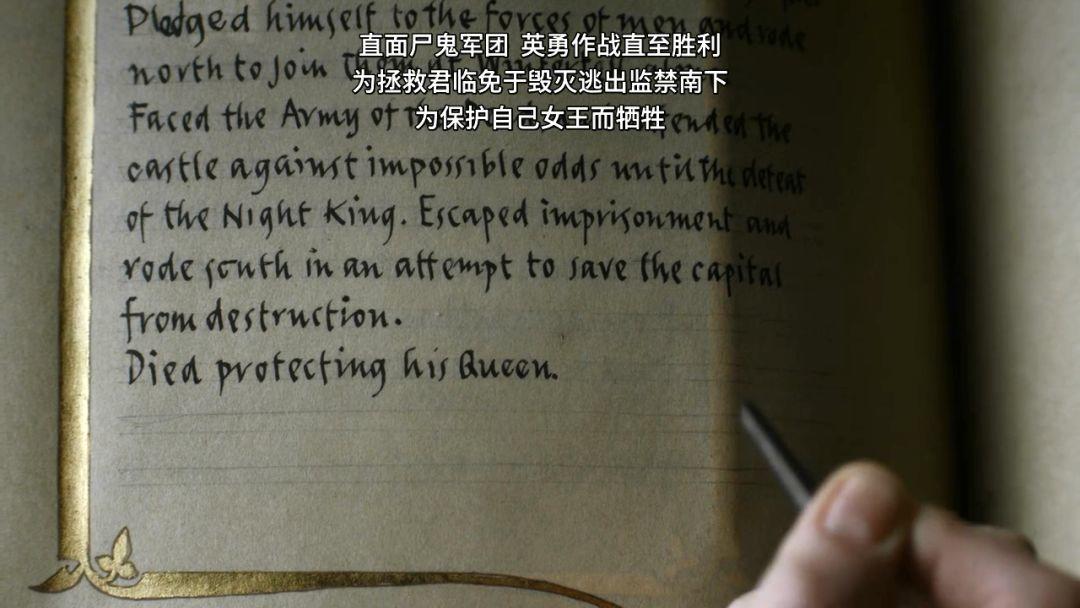 Pledged himself to the forces of men and rode
north to join them at Winterfell
Faced the Army of the ended the
castle against impossible odds until the defeat
of the Night King. Escaped imprisonment and
rode south in an attempt to save the capital
from destruction.
Died protecting his Queen.
直面尸鬼军团 英勇作战直至胜利
为拯救君临免于毁灭逃出监禁南下
为保护自己女王而牺牲